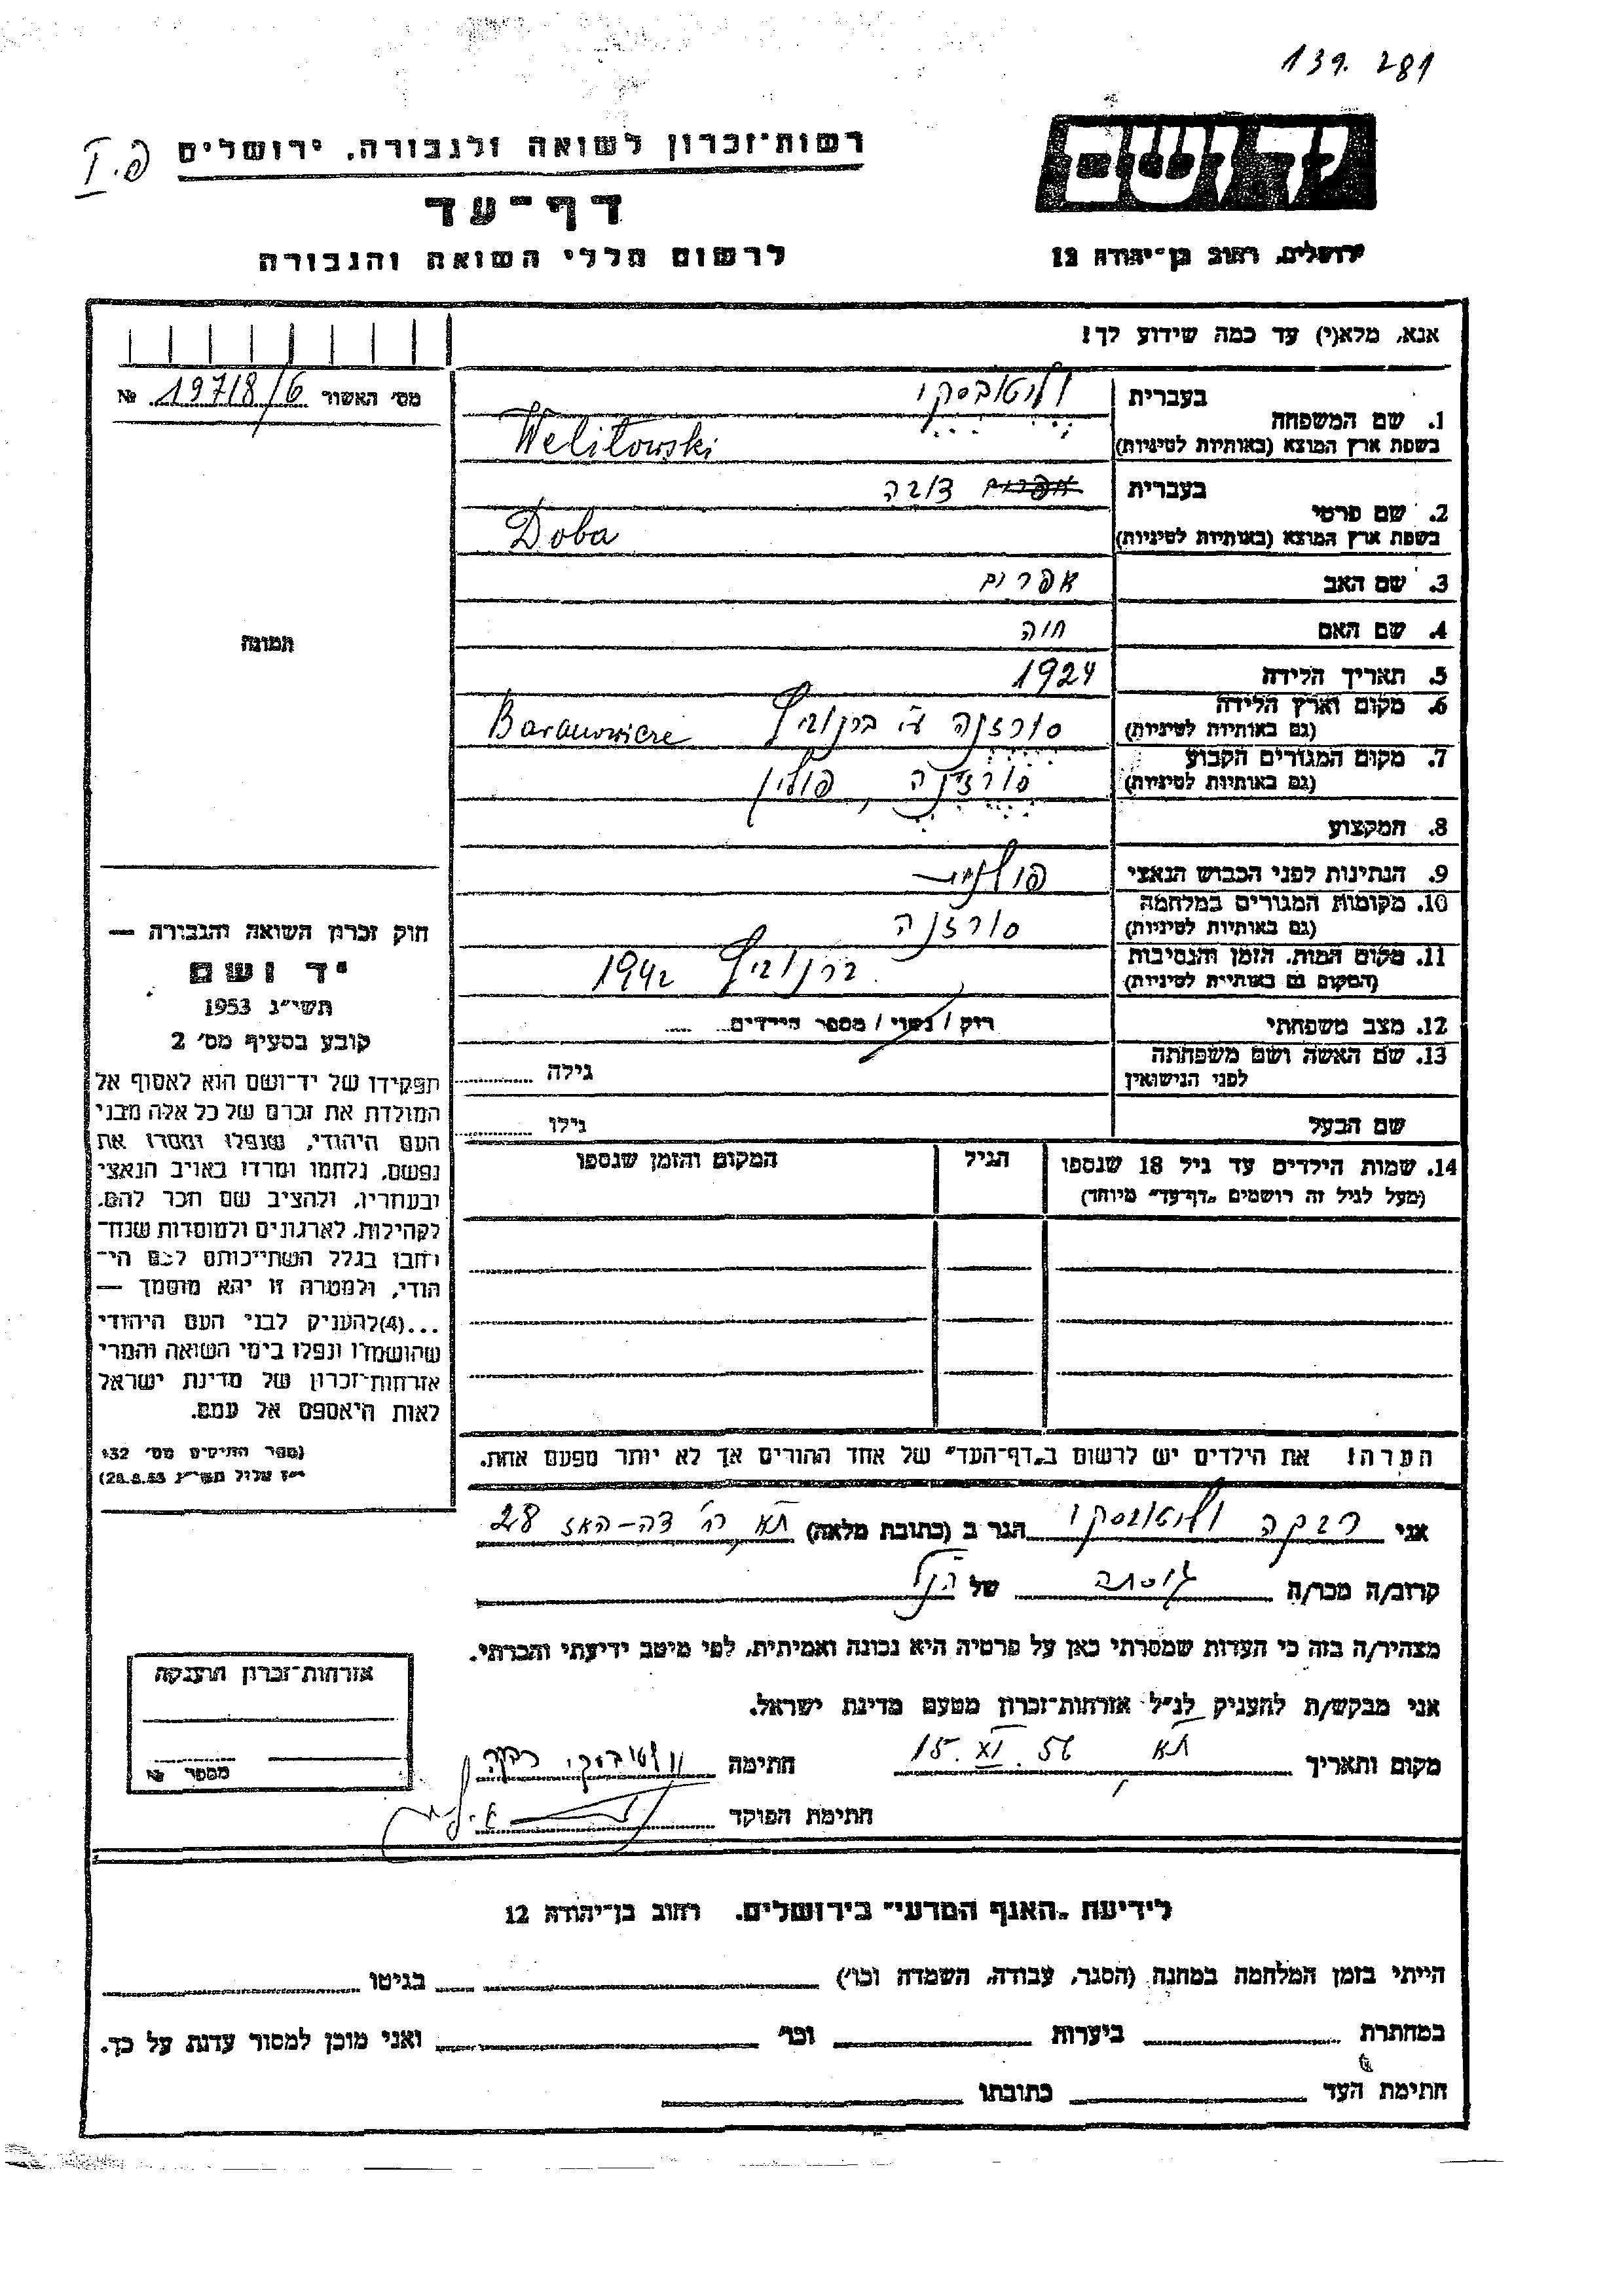 139. 281
יד ושם
ירושלים, רחוב בן־יהודה 12
רשות־זכרון לשואה ולגבורה, ירושלים
פ. I
דף־עד
לרשום חללי השואה והגבורה
אנא, מלא(י) עד כמה שידוע לך!
מס׳ האשור 19718/6 №
תמונה
1. שם המשפחה
בעברית וליטובסקי
בשפת ארץ המוצא (באותיות לטיניות) Welitowski
2. שם פרטי
בעברית אפרים דובה
בשפת ארץ המוצא (באותיות לטיניות) Doba
3. שם האב אפרים
4. שם האם חוה
5. תאריך הלידה 1924
6. מקום וארץ הלידה
(גם באותיות לטיניות) ברנוביץ Baranowicze
7. מקום המגורים הקבוע
(גם באותיות לטיניות) , פולין
8. המקצוע
9. הנתינות לפני הכבוש הנאצי פולנית
10. מקומות המגורים במלחמה
(גם באותיות לטיניות)
11. מקום המות, הזמן והנסיבות
(המקום גם באותיות לטיניות) ברנוביץ 1942
12. מצב משפחתי רוק / נשוי / מספר הילדים
13. שם האשה ושם משפחתה
לפני הנישואין גילה
שם הבעל גילו
14. שמות הילדים עד גיל 18 שנספו הגיל המקום והזמן שנספו
(מעל לגיל זה רושמים „דף־עד״ מיוחד)
הערה! את הילדים יש לרשום ב„דף־העד״ של אחד ההורים אך לא יותר מפעם אחת.
חוק זכרון השואה והגבורה —
יד ושם
תשי״ג 1953
קובע בסעיף מס׳ 2
תפקידו של יד־ושם הוא לאסוף אל
המולדת את זכרם של כל אלה מבני
העם היהודי, שנפלו ומסרו את
נפשם, נלחמו ומרדו באויב הנאצי
ובעוזריו, ולהציב שם וזכר להם,
לקהילות, לארגונים ולמוסדות שנח־
רבו בגלל השתייכותם לעם הי־
הודי, ולמטרה זו יהא מוסמך —
...(4)להעניק לבני העם היהודי
שהושמדו ונפלו בימי השואה והמרי
אזרחות־זכרון של מדינת ישראל
לאות היאספם אל עמם.
(ספר החוקים מס׳ 132
י״ז אלול תשי״ג 28.8.53)
אני רבקה וליטובסקי הגר ב (כתובת מלאה) תא 28
קרוב/ה מכר/ה גיסתה של הנ״ל
מצהיר/ה בזה כי העדות שמסרתי כאן על פרטיה היא נכונה ואמיתית, לפי מיטב ידיעתי והכרתי.
אני מבקש/ת להעניק לנ״ל אזרחות־זכרון מטעם מדינת ישראל.
מקום ותאריך תא 15. XI. 56 חתימה וליטובסקי רבקה
חתימת הפוקד
אזרחות־זכרון הוענקה
מספר №
לידיעת „האגף המדעי״ בירושלים, רחוב בן־יהודה 12
הייתי בזמן המלחמה במחנה (הסגר, עבודה, השמדה וכו׳) בגיטו
במחתרת ביערות וכו׳ ואני מוכן למסור עדות על כך.
חתימת העד כתובתו